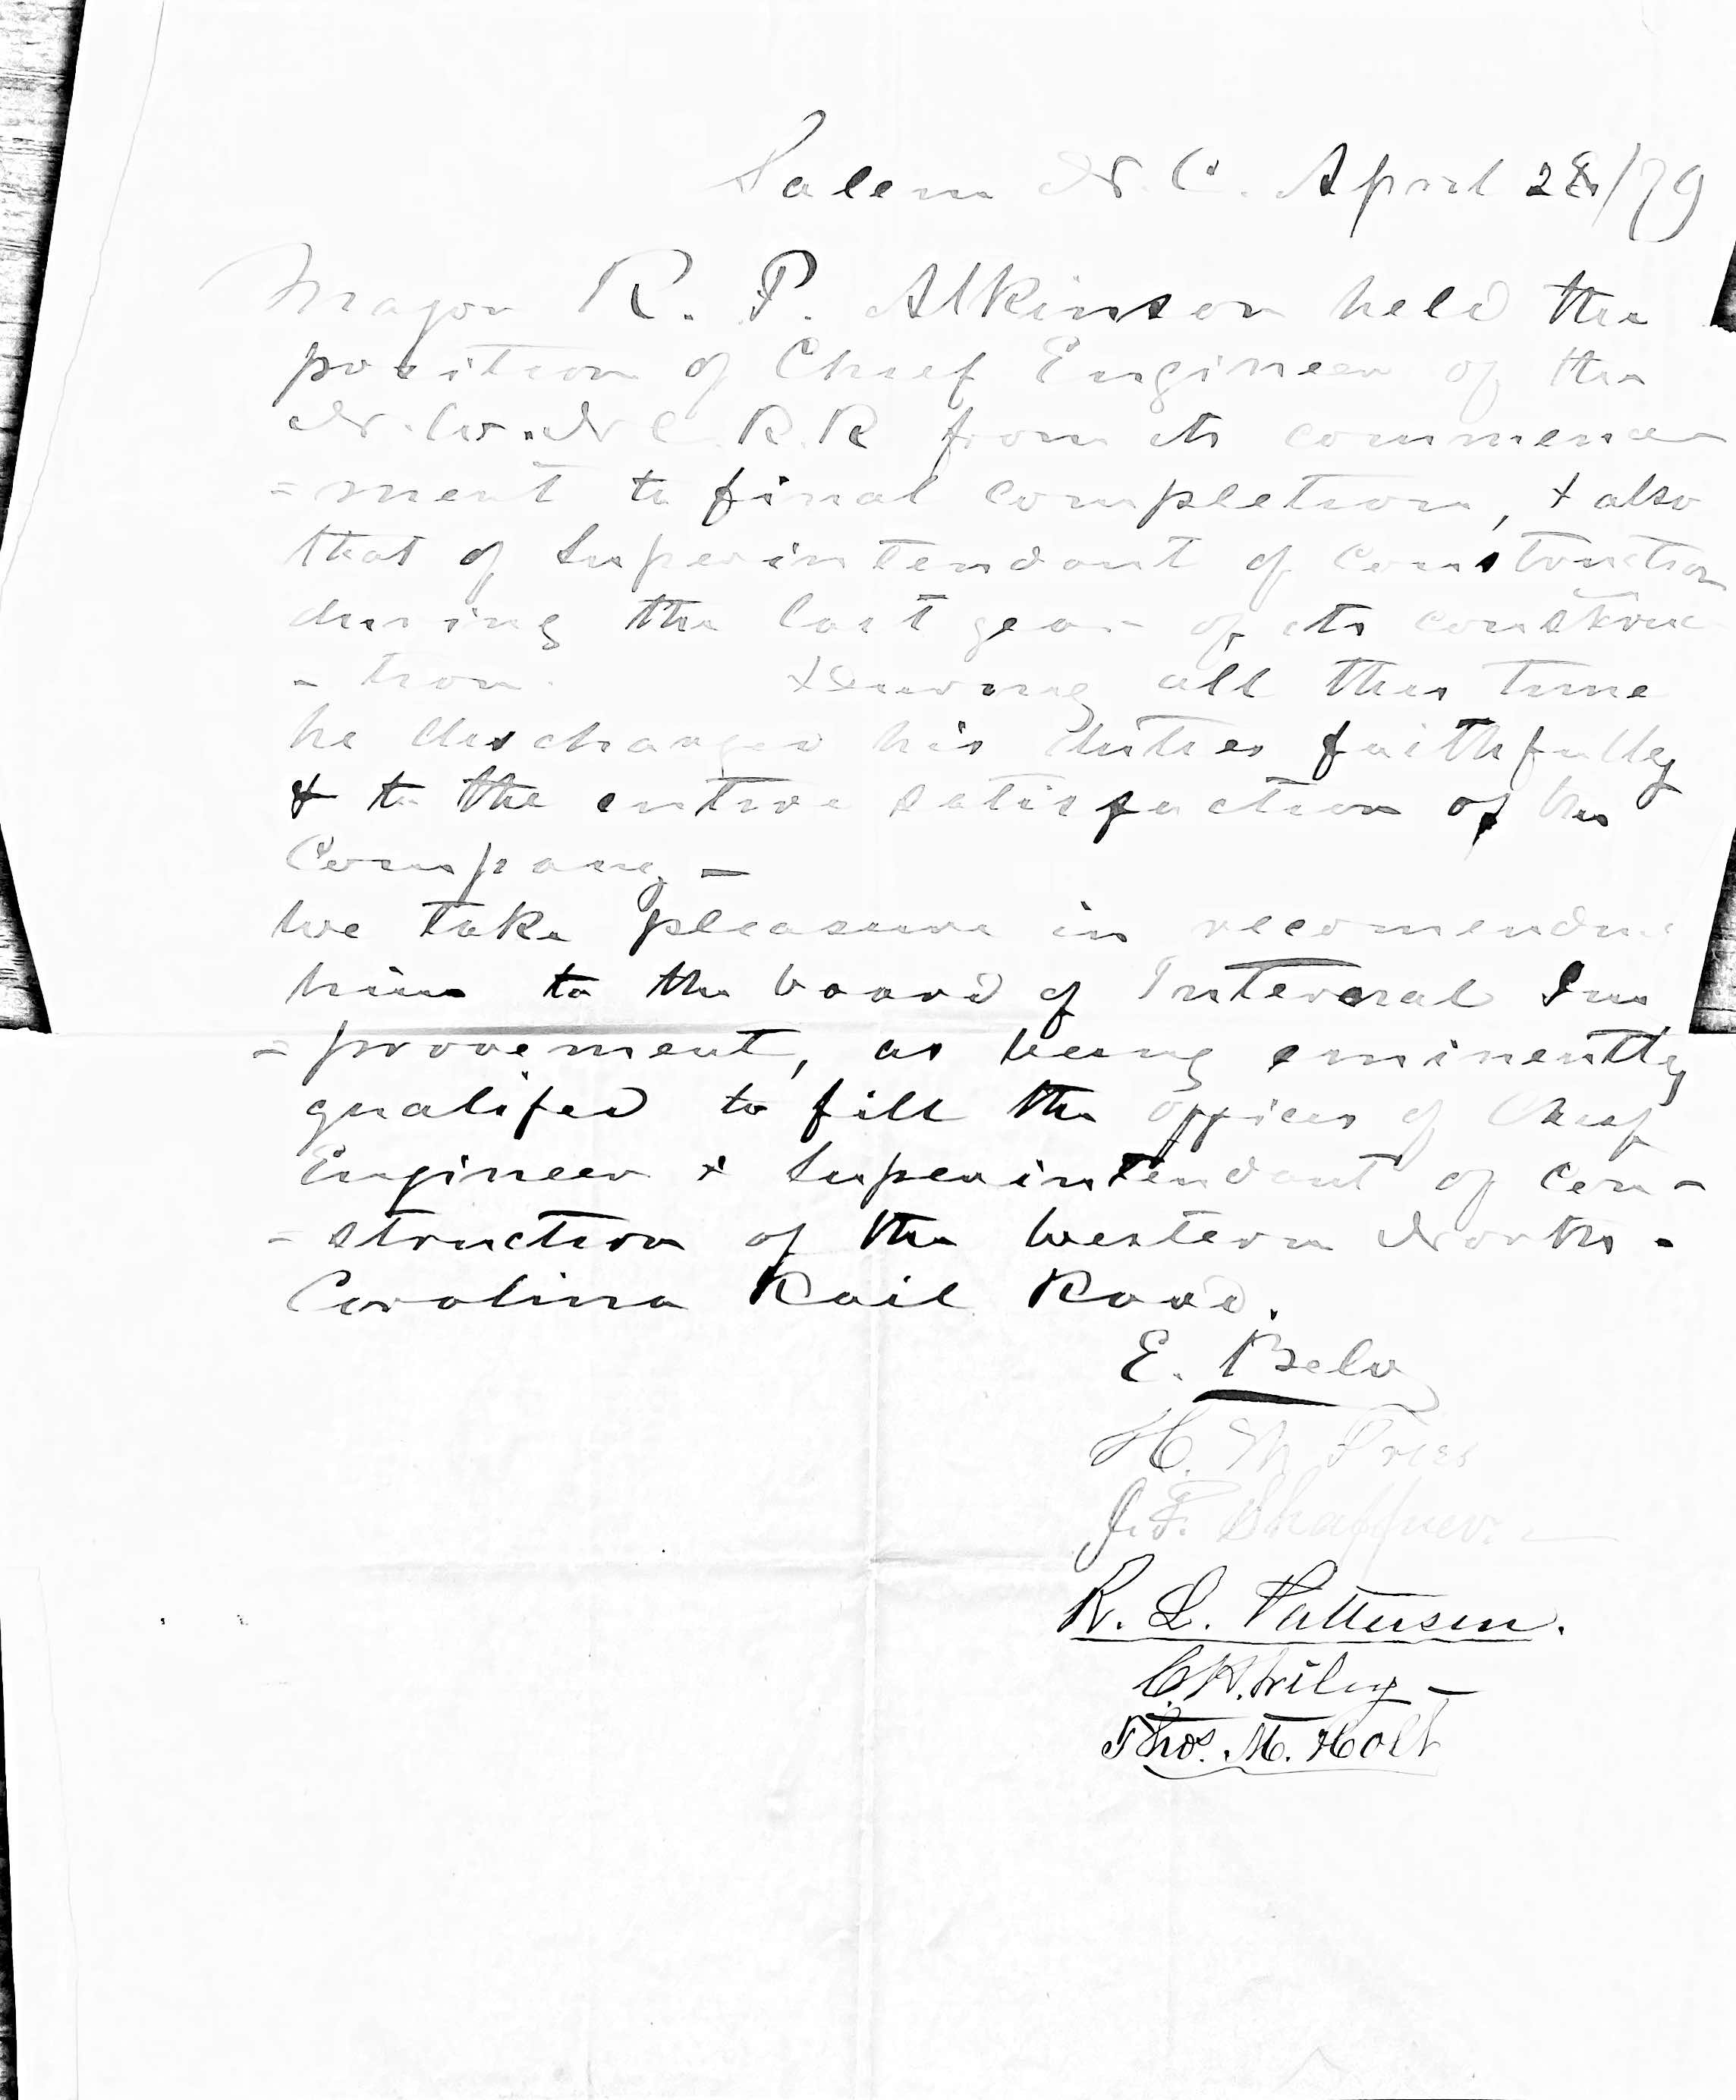 Salem N. C. April 28/79
Major R. P. Atkinson held the
position of Chief Engineer of the
N. W. N C. R. R from its commence
= ment to final completion, & also
that of Superintendant of Construction
during the last year of its construc
- tion. & During all this time
he discharged his duties faithfully
& to the entire satisfaction of the
Company –
We take pleasure in recomending
him to the board of Internal Im
= provement, as being eminently
qualifed to fill the offices of Chief
Engineer & Superintendant of Con -
= struction of the Western North -
Carolina Rail Road.
E. Belo
H. W Fries
J. F. Shaffner. –
R. L. Patterson.
C. H. Wiley –
Thos. M. Holt